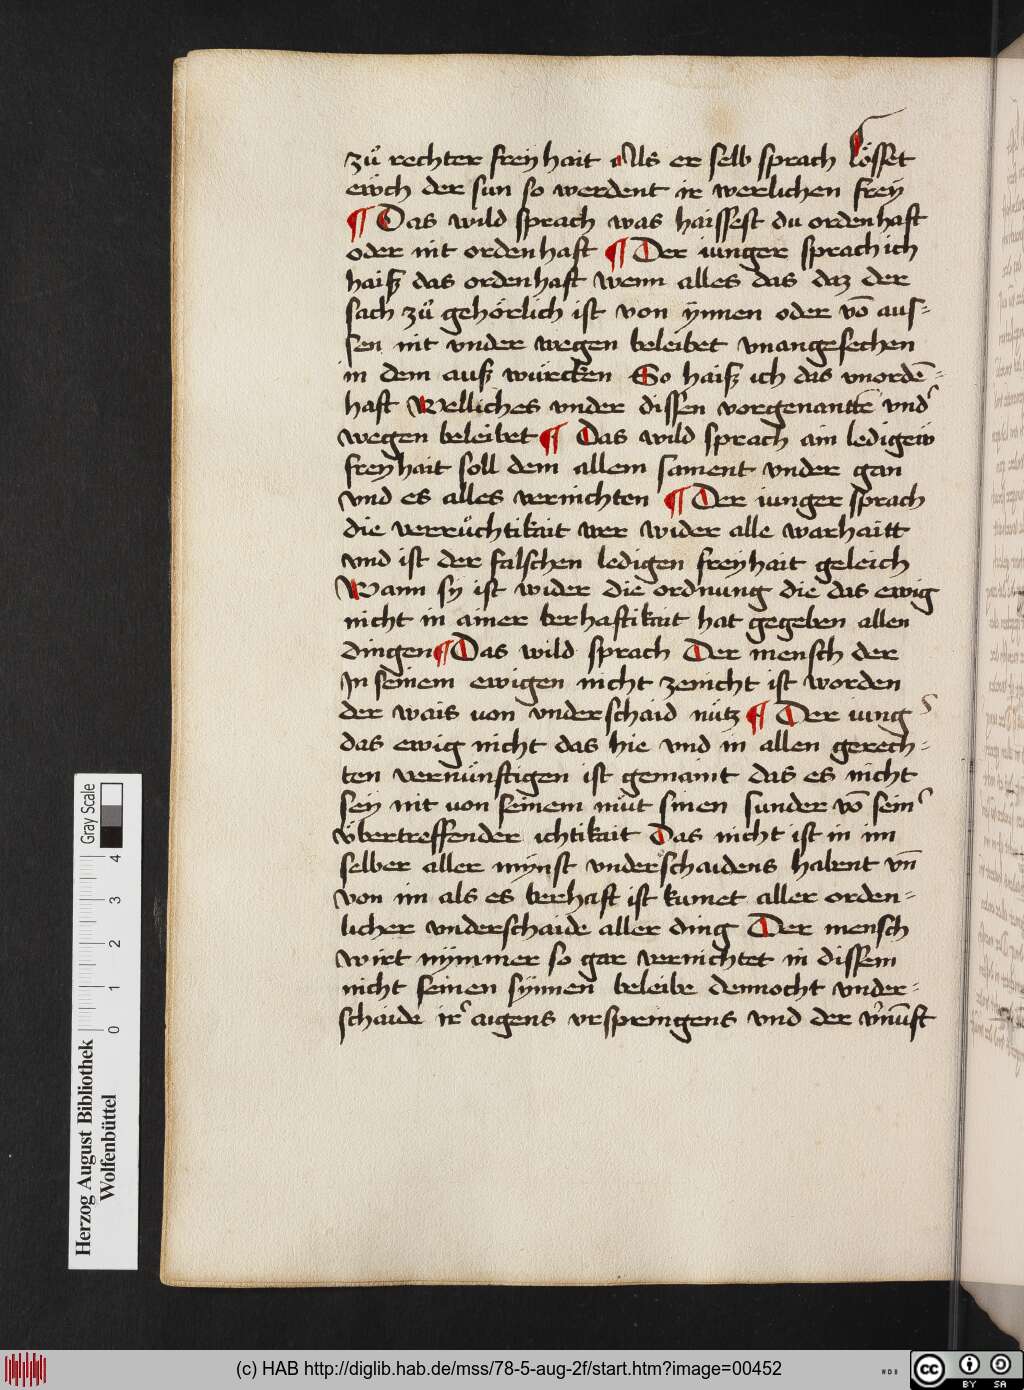 zů rechter freyhait Als er selb sprach Lösset
ewch der sun so werdent ir werlichen frey
¶ Das wild sprach was haissest du ordenhaft
oder nit ordenhaft ¶ Der iunger sprach ich
haiß das ordenhaft wenn alles das daz der
sach zů gehörlich ist von ÿnnen oder vō aus=
sen nit vnder wegen beleibet vnangesechen
in dem auß würcken So haiß ich das vnordē=
haft Welliches vnder dissen vorgenanttē vnd
wegen beleibet ¶ Das wild sprach ain ledigew
freyhait soll dem allem sament vnder gan
vnd es alles vernichten ¶ Der iunger sprach
die verrüchtikait wer wider alle warhaitt
vnd ist der falschen ledigen freyhait geleich
Wann sy ist wider die ordnung die das ewig
nicht in ainer berhaftikait hat gegeben allen
dingen ¶ Das wild sprach Der mensch der
In seinem ewigen nicht zenicht ist worden
der wais von vnderschaid nütz ¶ Der iung
das ewig nicht das hie vnd in allen gerech=
ten vernünftigen ist gemaint das es nicht
sey nit von seinem nüt sinen sunder vō sein
übertreffender ichtikait Das nicht ist in im
selber aller mÿnst vnderschaidens habent vn̄
von im als es berhaft ist kumet aller orden=
licher vnderschaide aller ding Der mensch
wirt nÿmmer so gar vernichtet in dissem
nicht seinen sÿnnen beleibe dennocht vnder=
schaide ir aigens vrspringens vnd der v̓nūft
Herzog August Bibliothek
Wolfenbüttel
Gray Scale
0 1 2 3 4
(c) HAB http://diglib.hab.de/mss/78-5-aug-2f/start.htm?image=00452
WDB
cc BY SA